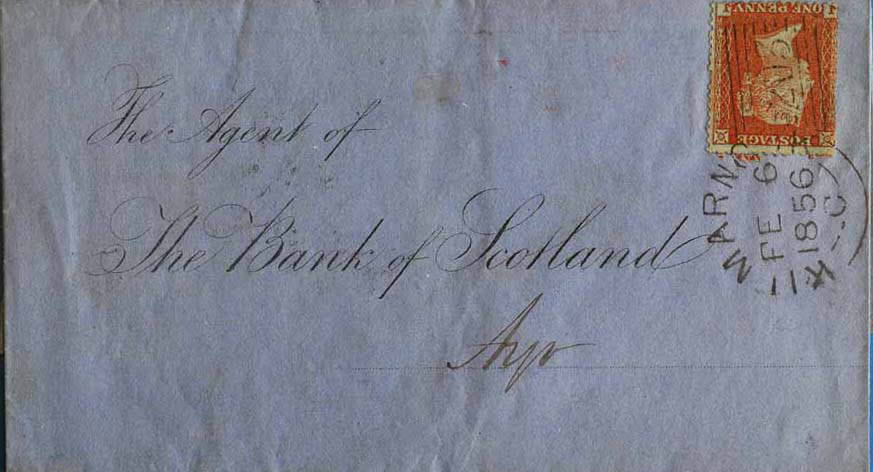 The Agent of
The Bank of Scotland
Ayr
POSTAGE
ONE PENNY
J J
FE 6
1856
C